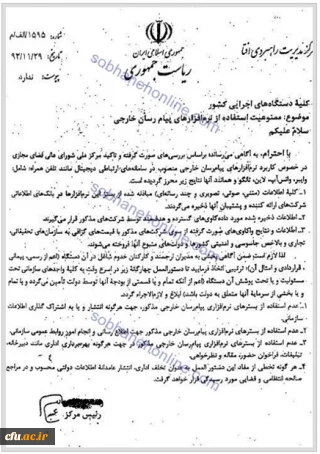 مرکز مدیریت راهبردی افتا
جمهوری اسلامی ایران
ریاست جمهوری
شماره: ۱۵۹۵/الف/م
تاریخ: ۹۳/۱۱/۲۹
پیوست: ندارد
کلیهٔ دستگاه‌های اجرایی کشور
موضوع: ممنوعیت استفاده از نرم‌افزارهای پیام رسان خارجی
سلام علیکم
با احترام، به آگاهی می‌رساند؛ براساس بررسی‌های صورت گرفته و تاکید مرکز ملی شورای عالی فضای مجازی
در خصوص کاربرد نرم‌افزارهای پیام‌رسان خارجی منصوب در سامانه‌های ارتباطی دیجیتال مانند تلفن همراه، شامل
وایبر، واتس‌آپ، لاین، تانگو و همانند آنها نتایج زیر محرز گردیده است.
۱- کلیهٔ اطلاعات (متنی، صوتی، تصویری و چند رسانه‌ای) مبادله شده از بستر این نرم‌افزارها در بانک‌های اطلاعاتی
شرکت‌های ارائه کننده و پشتیبان آنها ذخیره می‌گردد.
۲- اطلاعات ذخیره شده مورد داده‌کاوی‌های گسترده و هدفمند توسط شرکت‌های مذکور قرار می‌گیرند.
۳- اطلاعات و نتایج واکاوی‌های صورت گرفته از سوی شرکت‌های مذکور با قیمت‌های گزافی به سازمان‌های تحقیقاتی،
تجاری و بالاخص جاسوسی و امنیتی کشورها و دولت‌های متبوع آنها فروخته می‌شوند.
لذا لازم است ضمن آگاهی بخشی به مدیران ارجمند و کارکنان خدوم شاغل در آن دستگاه (اعم از رسمی، پیمانی
، قراردادی و امثال آن)، ترتیبی اتخاذ فرمایید تا دستورالعمل چهارگانهٔ زیر در اسرع وقت به کلیهٔ واحدهای سازمانی تحت
مسئولیت و یا تحت پوشش آن دستگاه (از آنکه تمام و یا قسمتی از بودجهٔ آنها توسط دولت تأمین می‌گردد و یا تمام
و یا بخشی از سرمایهٔ آنها متعلق به دولت باشد) ابلاغ و لازم‌الاجراء گردد.
۱- عدم استفاده از بسترهای نرم‌افزاری پیام‌رسان خارجی مذکور، جهت هرگونه انتشار و یا به اشتراک گذاری اطلاعات
سازمانی.
۲- عدم استفاده از بسترهای نرم‌افزاری پیام‌رسان خارجی مذکور جهت اطلاع رسانی و انجام امور روابط عمومی سازمانی.
۳- عدم استفاده از بسترهای نرم‌افزاری پیام‌رسان خارجی مذکور، در جهت هرگونه بهره‌برداری اداری مانند دبیرخانه،
تبلیغات، فراخوان حضور، مقاله و نظرخواهی.
۴- هر گونه تخطی از مفاد این دستور العمل به عنوان تخلف اداری، انتشار عامدانهٔ اطلاعات دولتی محسوب و در مراجع
صالحه انتظامی و قضایی مورد رسیدگی قرار خواهد گرفت.
رئیس مرکز
sobhanehonline.com
cfu.ac.ir